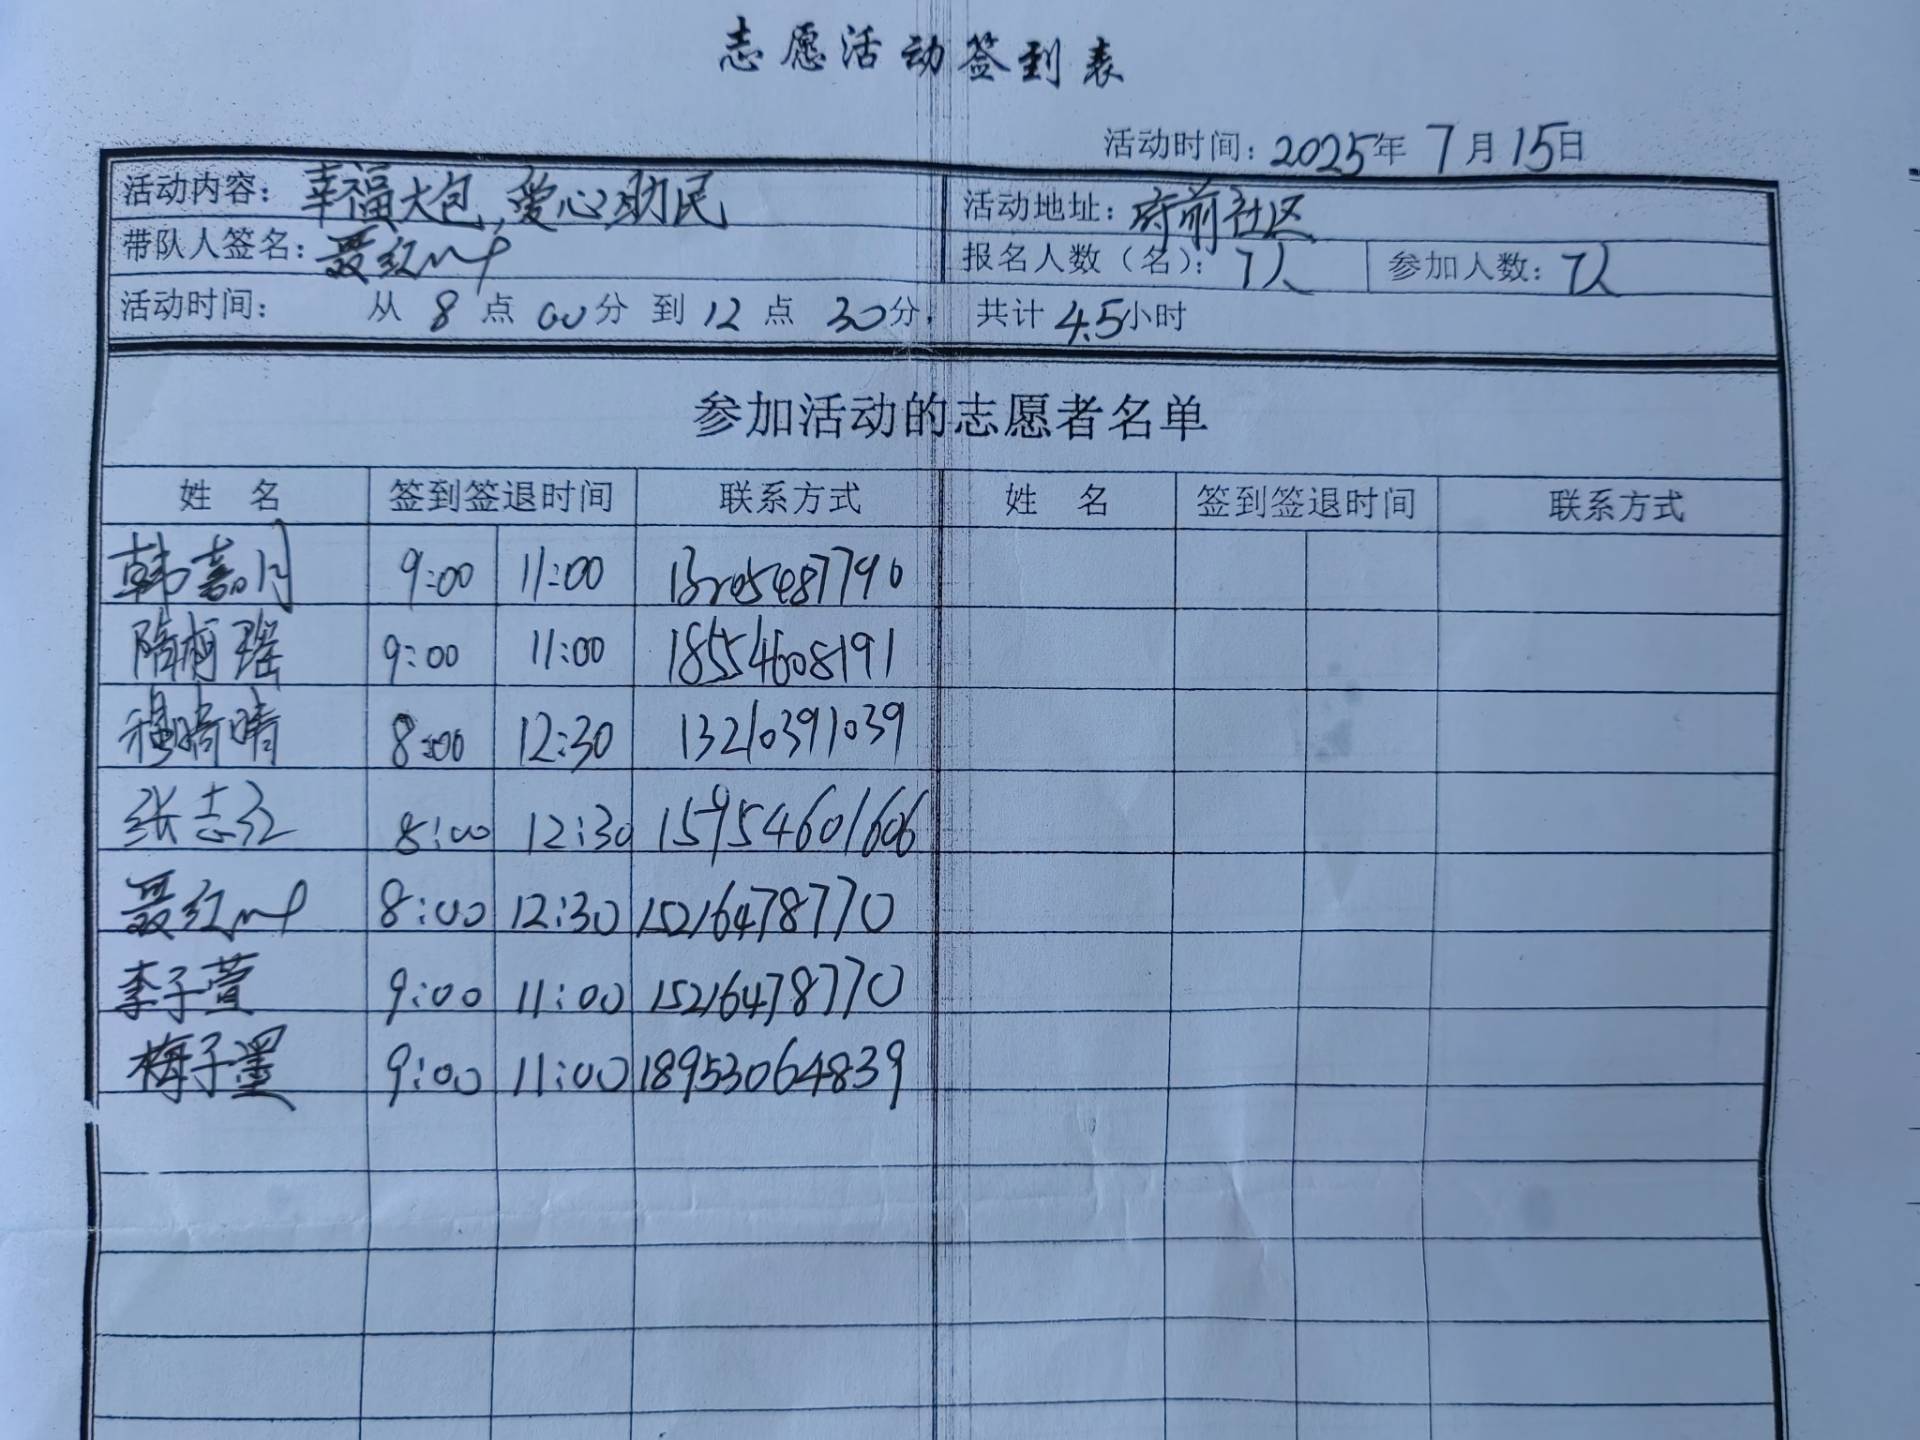 志愿活动签到表
活动时间：2025年7月15日
活动内容：幸福大包，爱心助民 活动地址：府前社区
带队人签名：聂红 报名人数（名）：7人 参加人数：7人
活动时间： 从8点00分到12点30分， 共计4.5小时
参加活动的志愿者名单
姓 名 签到签退时间 联系方式 姓 名 签到签退时间 联系方式
韩嘉月 9:00 11:00
隋 瑶 9:00 11:00 18554608191
穆 晴 8:00 12:30 13210391039
张志红 8:00 12:30 15954601606
聂红 8:00 12:30 15216478770
李子萱 9:00 11:00 15216478770
梅子墨 9:00 11:00 18953064839